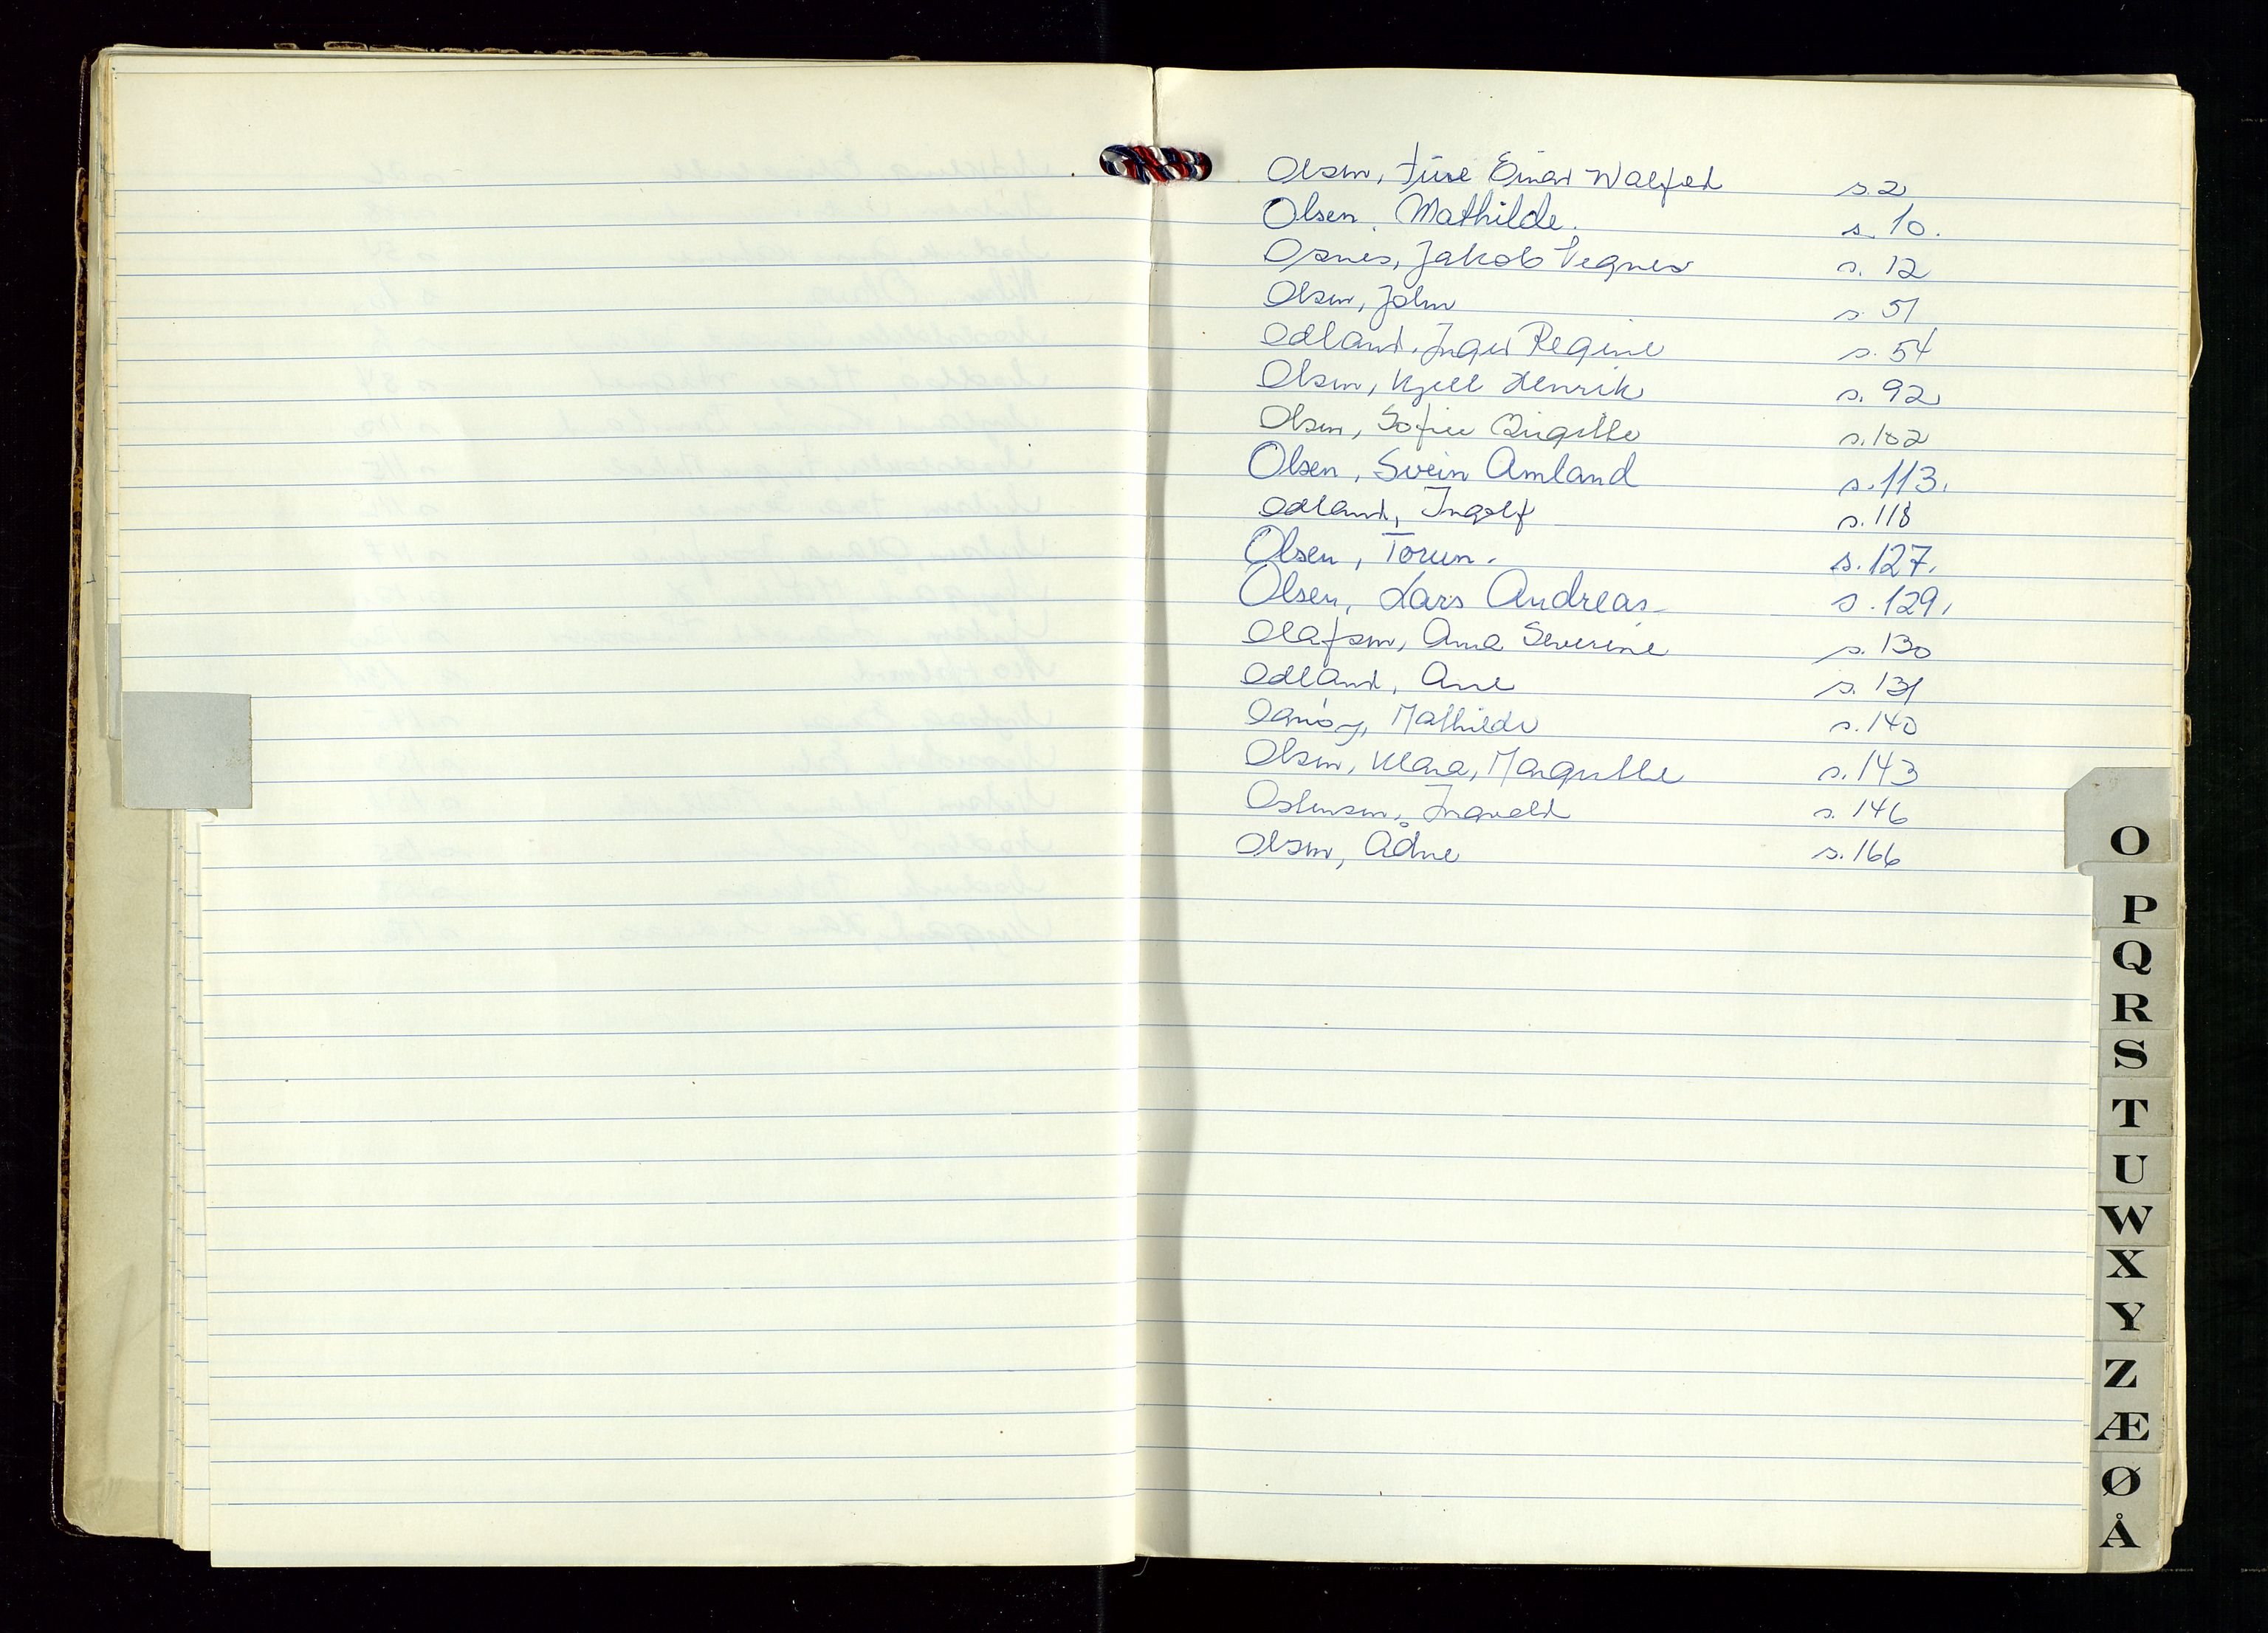 Olsen, Einar Walfred s. 2
Olsen, Mathilde. s. 10.
Osnes, Jakob Vegner s. 12
Olsen, John s. 51
Odland, Inger Regine s. 54
Olsen, Kjell Henrik s. 92
Olsen, Sofie Birgitte s. 102
Olsen, Svein Amland s. 113.
Odland, Ingolf s. 118
Olsen, Torun. s. 127.
Olsen, Lars Andreas s. 129.
Olafsen, Anna Severine s. 130
Odland, Ane s. 131
Mathilde s. 140
Olsen, Klara, Margrethe s. 143
Ostensen, Ingvald s. 146
Olsen, Ådne s. 166
O
P
Q
R
S
T
U
W
X
Y
Z
Æ
Ø
Å